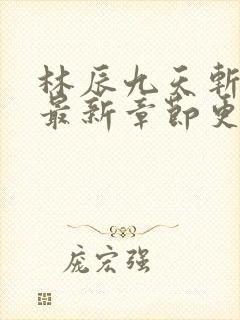 林辰九天斩
最新章节更
庞宏强